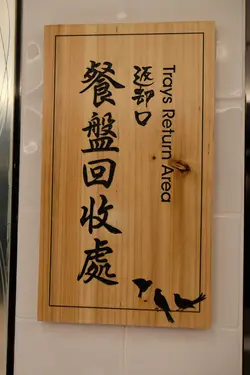 Trays Return Area
返却口
餐盤回收處